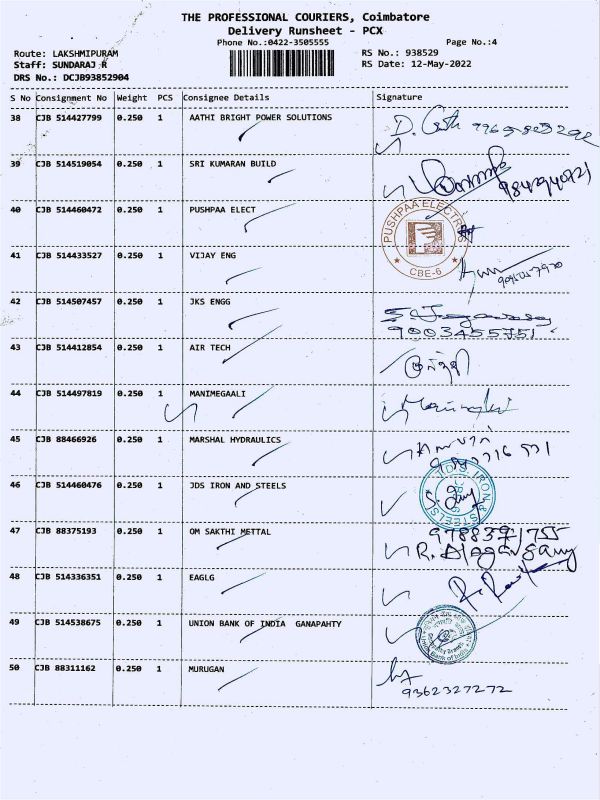 THE PROFESSIONAL COURIERS, Coimbatore
Delivery Runsheet - PCX
Phone No.:0422-3505555
Page No.:4
Route: LAKSHMIPURAM
RS No.: 938529
Staff: SUNDARAJ R
RS Date: 12-May-2022
DRS No.: DCJB93852904
S No Consignment No Weight PCS Consignee Details Signature
38 CJB 514427799 0.250 1 AATHI BRIGHT POWER SOLUTIONS
39 CJB 514519054 0.250 1 SRI KUMARAN BUILD
40 CJB 514460472 0.250 1 PUSHPAA ELECT
PUSHPAA ELECTRO
CBE-6
41 CJB 514433527 0.250 1 VIJAY ENG
42 CJB 514507457 0.250 1 JKS ENGG
9003455751
43 CJB 514412854 0.250 1 AIR TECH
44 CJB 514497819 0.250 1 MANIMEGAALI
45 CJB 88466926 0.250 1 MARSHAL HYDRAULICS
46 CJB 514460476 0.250 1 JDS IRON AND STEELS
IRON & STEELS
47 CJB 88375193 0.250 1 OM SAKTHI METTAL
48 CJB 514336351 0.250 1 EAGLG
49 CJB 514538675 0.250 1 UNION BANK OF INDIA GANAPAHTY
Union Bank of India
50 CJB 88311162 0.250 1 MURUGAN
9362327272